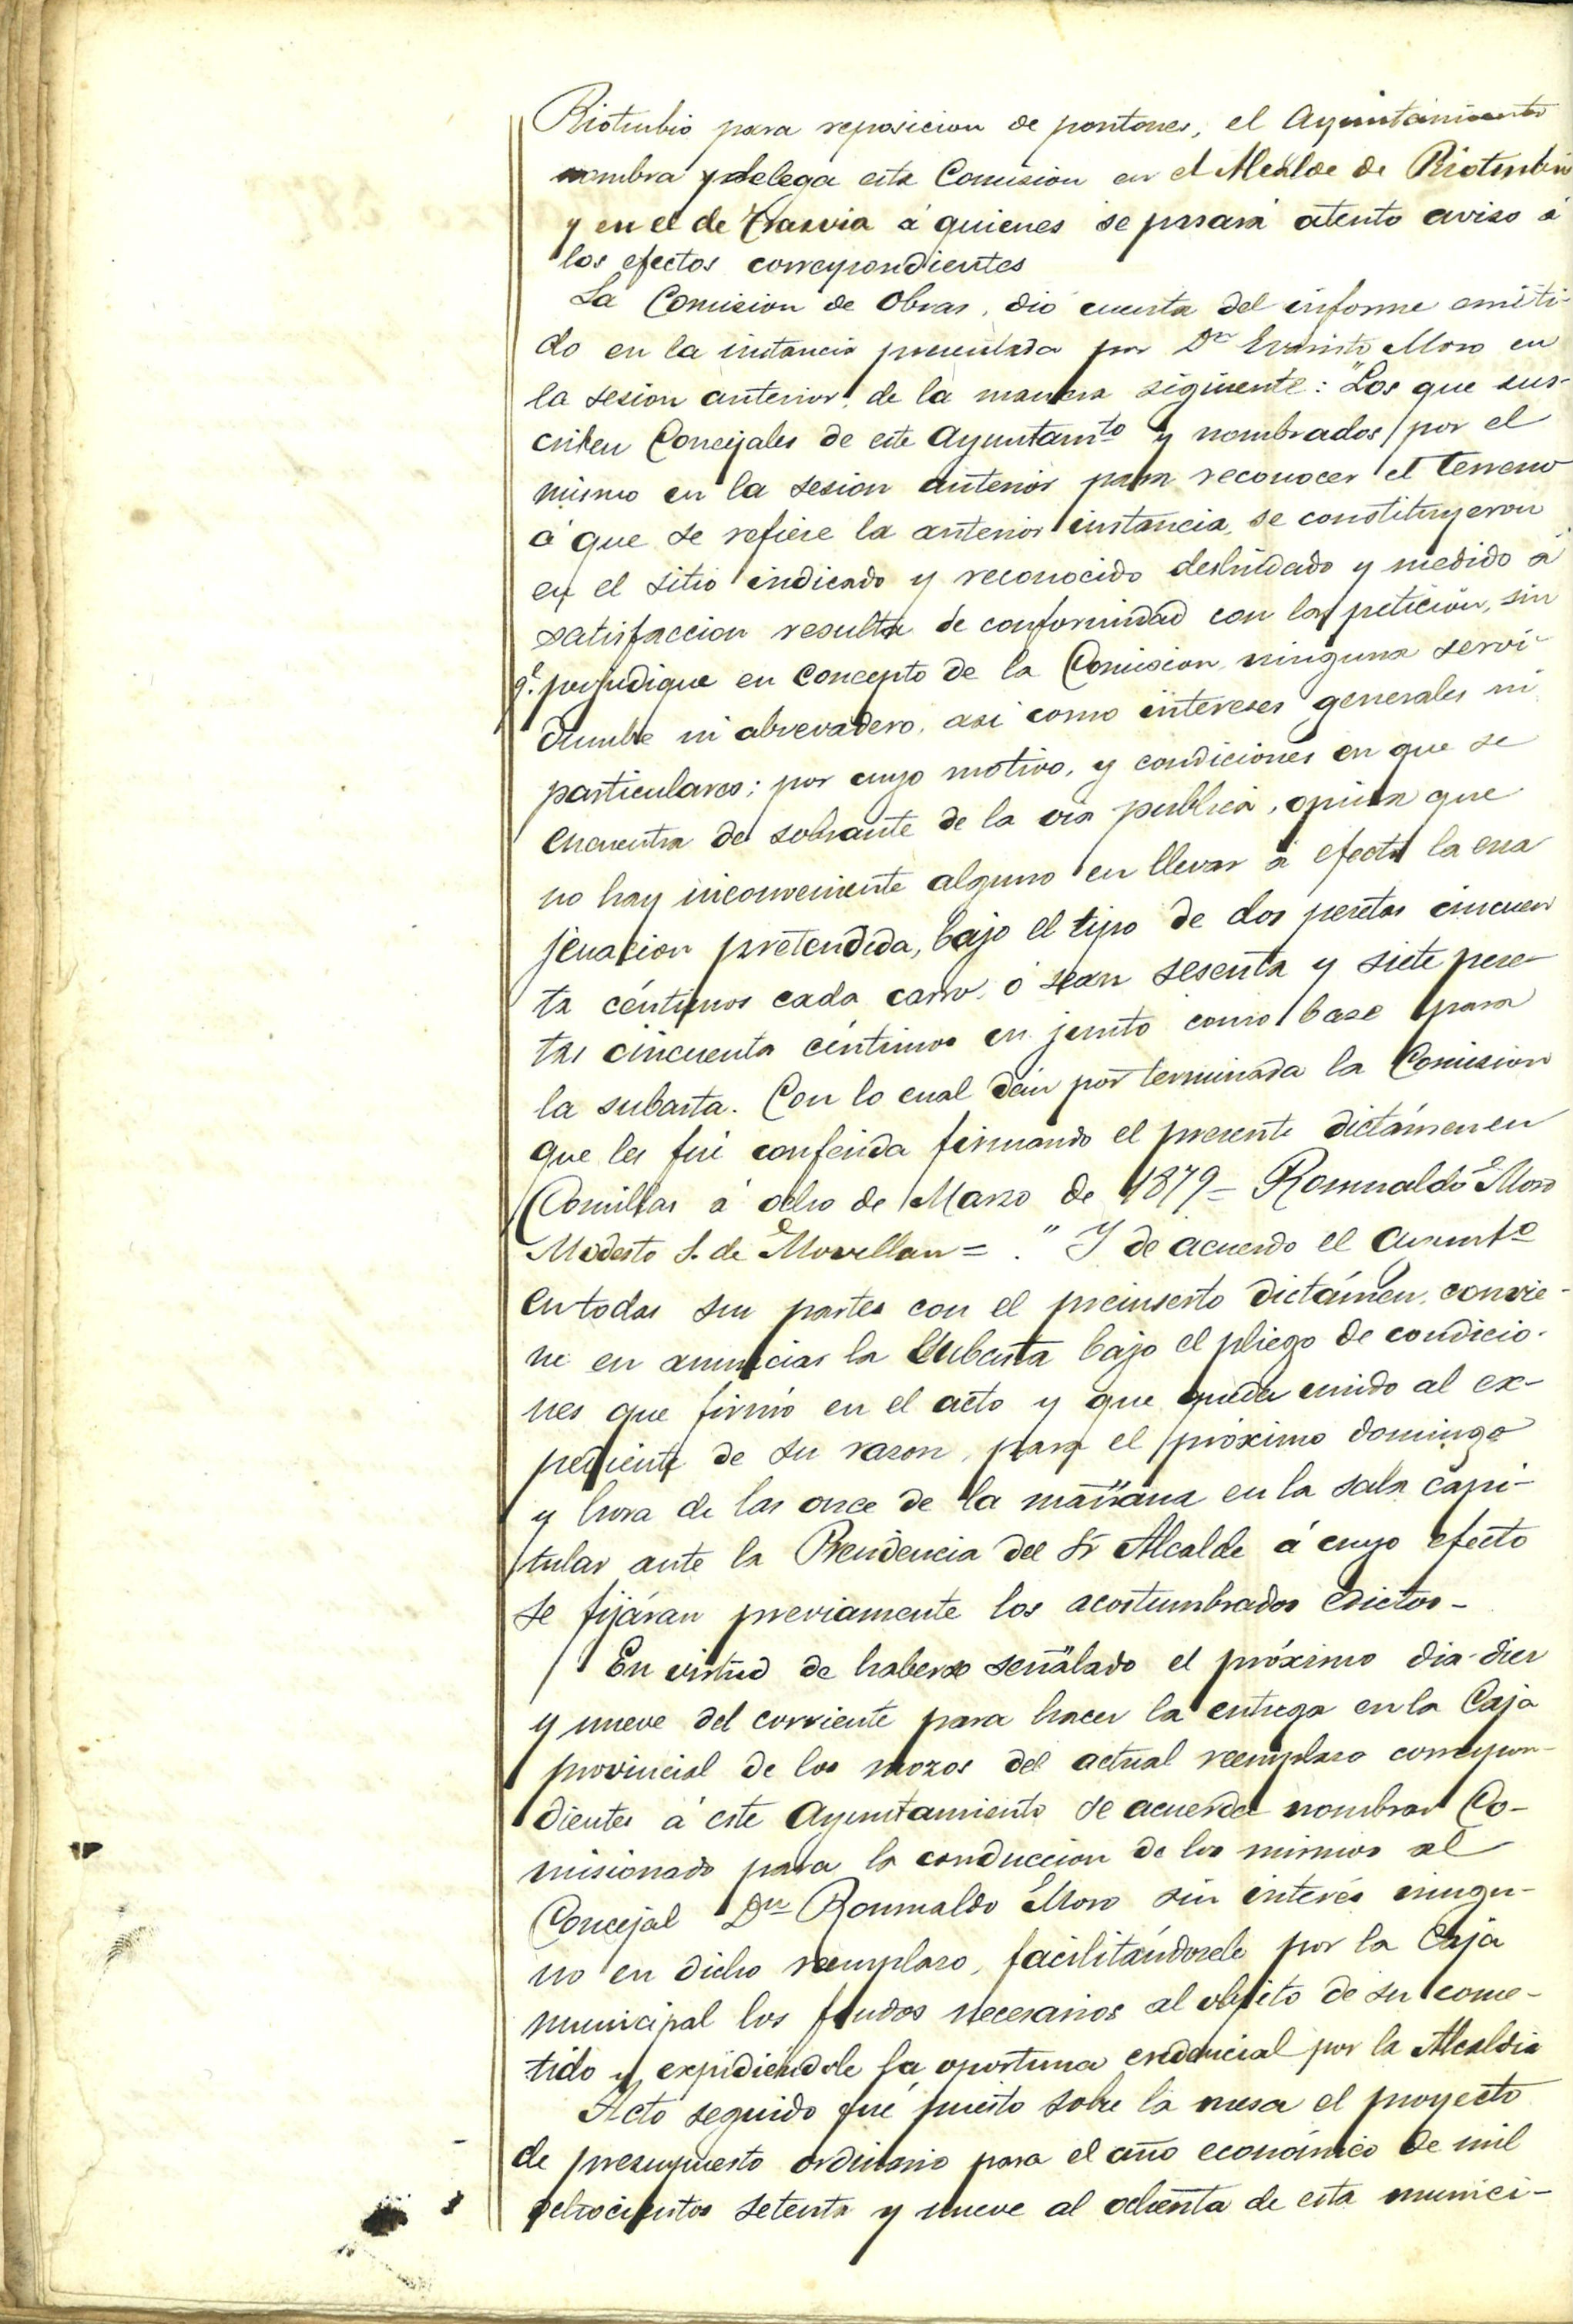 Rioturbio para reposicion de pontones, el Ayuntamiento
nombra y delega esta Comision en el Alcalde de Rioturbio
y en el de Trasvia á quienes se pasará atento aviso á
los efectos correspondientes
La Comision de Obras, dió cuenta del informe emiti-
do en la instancia presentada por Dn Evaristo Moro en
la sesion anterior, de la manera siguiente: "Los que sus-
criben Concejales de este Ayuntamto y nombrados por el
mismo en la sesion anterior para reconocer el terreno
á que se refiere la anterior instancia, se constituyeron
en el sitio indicado y reconocido deslindado y medido á
satisfaccion resulta de conformidad con la peticion, sin
q.e perjudique en concepto de la Comision ninguna servi-
dumbre ni abrevadero, asi como intereses generales ni
particulares; por cuyo motivo, y condiciones en que se
encuentra de sobrante de la via publica, opina que
no hay inconveniente alguno en llevar á efecto la ena
jenacion pretendida, bajo el tipo de dos pesetas cincuen
ta céntimos cada carro, ó sean sesenta y siete pese-
tas cincuenta céntimos en junto como base para
la subasta. Con lo cual dán por terminada la Comision
que les fué conferida firmando el presente dictámen en
Comillas á ocho de Marzo de 1879 = Romualdo Moro
Modesto S. de Movellan = ." Y de acuerdo el Ayuntº
en todas sus partes con el preinserto dictámen, convie-
ne en anunciar la Subasta bajo el pliego de condicio-
nes que firmó en el acto y que queda unido al ex-
pediente de su razon, para el próximo domingo
y hora de las once de la mañana en la sala capi-
tular ante la Presidencia del Sr Alcalde á cuyo efecto
se fijáran previamente los acostumbrados edictos -
En virtud de haberse señalado el próximo dia diez
y nueve del corriente para hacer la entrega en la Caja
provincial de los mozos del actual reemplazo correspon-
dientes á este Ayuntamiento se acuerda nombrar Co-
misionado para la conduccion de los mismos al
Concejal Dn Romualdo Moro sin interés ningu-
no en dicho reemplazo, facilitándosele por la Caja
municipal los fondos necesarios al objeto de su come-
tido y expidiendole la oportuna credencial por la Alcaldia
Acto seguido fué puesto sobre la mesa el proyecto
de presupuesto ordinario para el año económico de mil
ochocientos setenta y nueve al ochenta de esta munici-